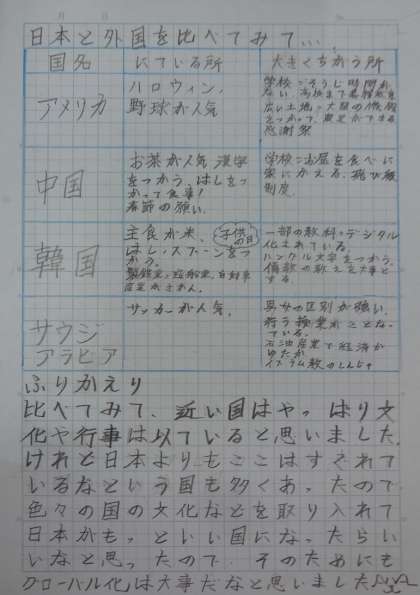 日本と外国を比べてみて…
国名 にている所 大きくちがう所
アメリカ
ハロウィン、
野球が人気
学校にそうじ時間が
ない、高校まで義務教育
広い土地と大型の機械
をつかって、農業ができる
感謝祭
中国
お茶が人気 漢字
をつかう、はしをつ
かって食事!
春節の願い、
学校にお昼を食べに
家にかえる、飛び級
制度、
韓国
主食が米、子供の日
はし・スプーンをつ
かう。
製鉄業・造船業、自動車
産業がさかん。
一部の教科・デジタル
化されている。
ハングル文字をつかう。
儒教の教えを大事と
する。
サウジ
アラビア
サッカーが人気、
男女の区別が強い、
行う授業がことなっ
ている。
石油産業で経済が
ゆたか
イスラム教の
ふりかえり
比べてみて、近い国はやっはり文
化や行事は以ていると思いました。
けれど日本よりもここはすぐれて
いるなという国も多くあったので
色々の国の文化などを取り入れて
日本がもっといい国になったらい
いなと思ったので、そのためにも
グローハル化は大事だなと思いました